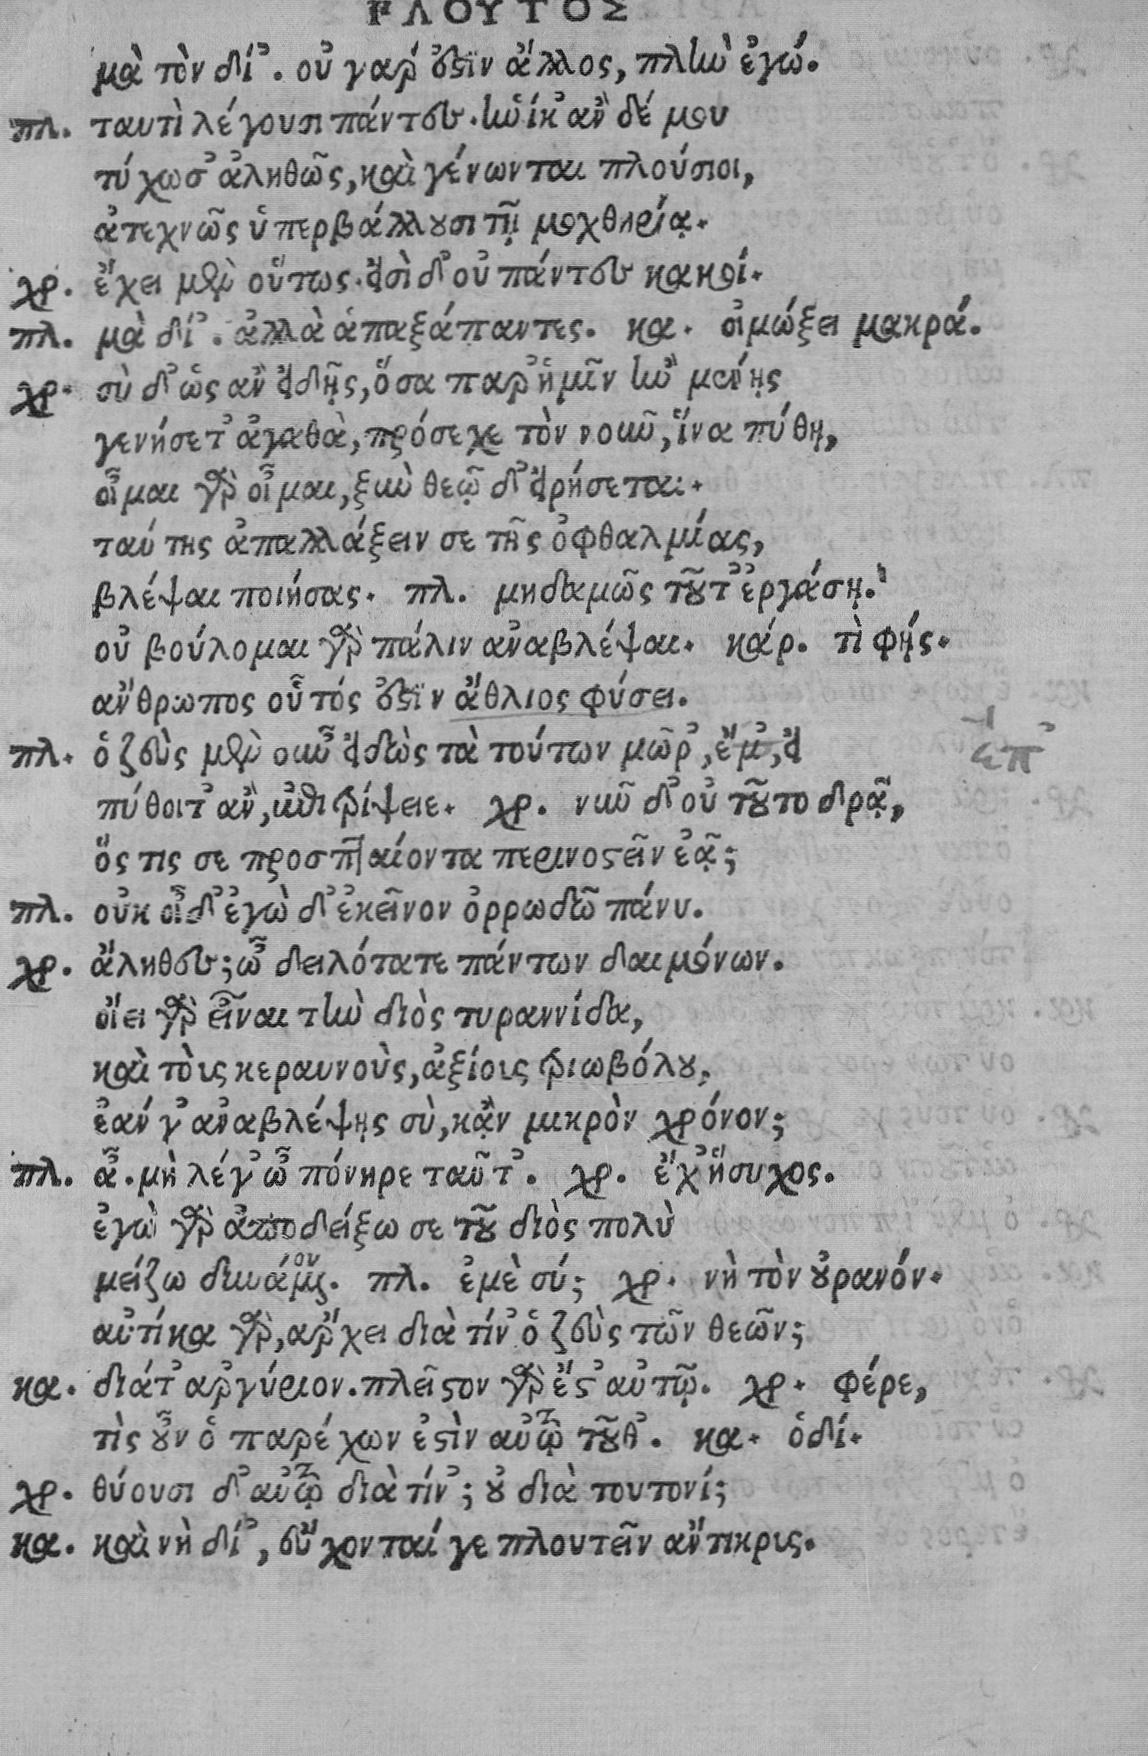 ΠΛΟΥΤΟΣ
μὰ τὸν δί᾽. οὐ γάρ ἐστὶν ἄλλος, πλὴν ἐγώ.
πλ. ταυτὶ λέγουσι πάντες. ἡνίκ᾽ ἂν δέ μου
τύχωσ᾽ ἀληθῶς, καὶ γένωνται πλούσιοι,
ἀτεχνῶς ὑπερβάλλουσι τῇ μοχθηρίᾳ.
χρ. ἔχει μὲν οὕτως. εἰσὶ δ᾽ οὐ πάντες κακοί.
πλ. μὰ δί᾽. ἀλλὰ ἁπαξάπαντες. κα. οἰμώξει μακρά.
χρ. σὺ δ᾽ ὡς ἂν εἰδῇς, ὅσα παρ᾽ ἡμῖν ἢν μένῃς
γενήσετ᾽ ἀγαθὰ, πρόσεχε τὸν νοῦν, ἵνα πύθῃ,
οἶμαι γὰρ οἶμαι, ξὺν θεῷ δ᾽ εἰρήσεται.
ταύτης ἀπαλλάξειν σε τῆς ὀφθαλμίας,
βλέψαι ποιήσας. πλ. μηδαμῶς τοῦτ᾽ ἐργάσῃ.
οὐ βούλομαι γὰρ πάλιν ἀναβλέψαι. κάρ. τὶ φῄς.
ἄνθρωπος οὗτός ἐστὶν ἄθλιος φύσει.
πλ. ὁ ζεὺς μὲν οὖν εἰδὼς τὰ τούτων μῶρ᾽, ἔμ᾽, εἰ
πύθοιτ᾽ ἂν, ἐπιτρίψειε. χρ. νῦν δ᾽ οὐ τοῦτο δρᾷ,
ὅς τις σε προσπταίοντα περινοστεῖν ἐᾷ;
πλ. οὐκ οἶδ᾽ ἐγὼ δ᾽ ἐκεῖνον ὀρρωδῶ πάνυ.
χρ. ἄληθες; ὦ δειλότατε πάντων δαιμόνων.
οἴει γὰρ εἶναι τὴν διὸς τυραννίδα,
καὶ τὸις κεραυνοὺς, ἀξίοις τριωβόλου,
ἐάν γ᾽ ἀναβλέψῃς σὺ, κᾂν μικρὸν χρόνον;
πλ. ἆ. μὴ λέγ᾽ ὦ πόνηρε ταῦτ᾽. χρ. ἔχ᾽ ἥσυχος.
ἐγὼ γὰρ ἀποδείξω σε τοῦ διὸς πολὺ
μείζω δυνάμενον. πλ. ἐμὲ σύ; χρ. νὴ τὸν οὐρανόν.
αὐτίκα γὰρ, ἄρχει διὰ τίν᾽ ὁ ζεὺς τῶν θεῶν;
κα. διάτ᾽ ἀργύριον. πλεῖστον γὰρ ἔστ᾽ αὐτῷ. χρ. φέρε,
τὶς οὖν ὁ παρέχων ἐστὶν αὐτῷ τοῦθ᾽. κα. ὁδί.
χρ. θύουσι δ᾽ αὐτῷ διὰ τίν᾽; οὐ διὰ τουτονί;
κα. καὶ νὴ δί᾽, εὔχονταί γε πλουτεῖν ἄντικρις.